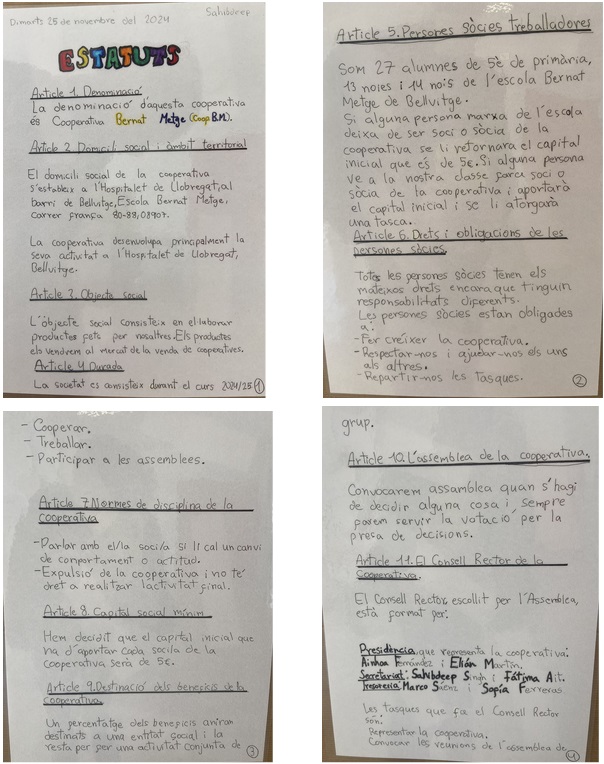 Dimarts 26 de novembre del 2024
Sahibdeep
ESTATUTS
Article 1. Denominació
La denominació d'aquesta cooperativa
és Cooperativa Bernat Metge (Coop B.M.).
Article 2. Domicili social i àmbit territorial
El domicili social de la cooperativa
s'estableix a l'Hospitalet de Llobregat, al
barri de Bellvitge, Escola Bernat Metge,
Carrer França 80-88, 08907.
La cooperativa desenvolupa principalment la
seva activitat a l'Hospitalet de Llobregat,
Bellvitge.
Article 3. Objecte social
L'objecte social consisteix en el·laborar
productes fets per nosaltres. Els productes
els vendrem al mercat de la venda de cooperatives.
Article 4. Durada
La societat es consisteix durant el curs 2024/25
1
Article 5. Persones sòcies treballadores
Som 27 alumnes de 5è de primària,
13 noies i 14 nois de l'escola Bernat
Metge de Bellvitge.
Si alguna persona marxa de l'escola
deixa de ser soci o sòcia de la
cooperativa se li retornarà el capital
inicial que és de 5€. Si alguna persona
ve a la nostra classe farà soci o
sòcia de la cooperativa i aportarà
el capital inicial i se li atorgarà
una tasca.
Article 6. Drets i obligacions de les
persones sòcies.
Totes les persones sòcies tenen els
mateixos drets encara que tinguin
responsabilitats diferents.
Les persones sòcies estan obligades
a:
- Fer créixer la cooperativa.
- Respectar-nos i ajudar-nos els uns
als altres.
- Repartir-nos les tasques.
2
- Cooperar.
- Treballar.
- Participar a les assemblees.
Article 7. Normes de disciplina de la
cooperativa
- Parlar amb el/la soci/a si li cal un canvi
de comportament o actitud.
- Expulsió de la cooperativa i no té
dret a realitzar l'activitat final.
Article 8. Capital social mínim
Hem decidit que el capital inicial que
ha d'aportar cada soci/a de la
cooperativa serà de 5€.
Article 9. Destinació dels beneficis de la
cooperativa.
Un percentatge dels beneficis aniran
destinats a una entitat social i la
resta per fer una activitat conjunta de
3
grup.
Article 10. L'assemblea de la cooperativa.
Convocarem assamblea quan s'hagi
de decidir alguna cosa i sempre
farem servir la votació per la
presa de decisions.
Article 11. El Consell Rector de la
Cooperativa.
El Consell Rector escollit per l'Assemblea,
està format per:
Presidència, que representa la cooperativa:
Ainhoa Fernández i Elián Martín.
Secretariat: Sahibdeep Singh i Fátima Ait.
Tresoreria: Marco Sáenz i Sofía Ferreras.
Les tasques que fa el Consell Rector
són:
Representar la cooperativa.
Convocar les reunions de l'assemblea de
4